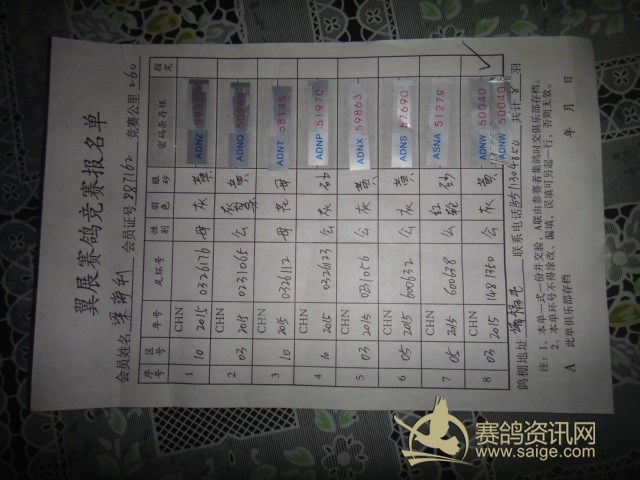 翼展赛鸽竞赛报名单
会员姓名 会员证号 287162 竞赛公里 260
序号 区号 年号 足环号 性别 羽色 眼砂 密码条存根 指定
1 10 CHN 2015 0326176 母 灰 黄 ADNZ
2 03 CHN 2015 0231065 公 黄 ADNQ
3 10 CHN 2015 0326112 母 花 ADNT 58145
4 10 CHN 2015 0326123 公 灰 砂 ADNP 51970
5 03 CHN 2015 0231056 公 灰 黄 ADNX 59863
6 05 CHN 2015 600632 公 灰 黄 ADNS 57690
7 05 CHN 2015 600638 公 红轮 砂 ASNA 51279
8 03 CHN 2015 1481350 公 灰 黄 ADNW 50040 ADNW 50040
鸽棚地址 联系电话 共计 8 羽
注：1、本单一式一份并交验，A联由参赛者集鸽时交俱乐部存档。
2、本单环号不得涂改、漏填，误填可另起一行，否则无效。
A 此单俱乐部存档 年 月 日
赛鸽资讯网
www.saige.com